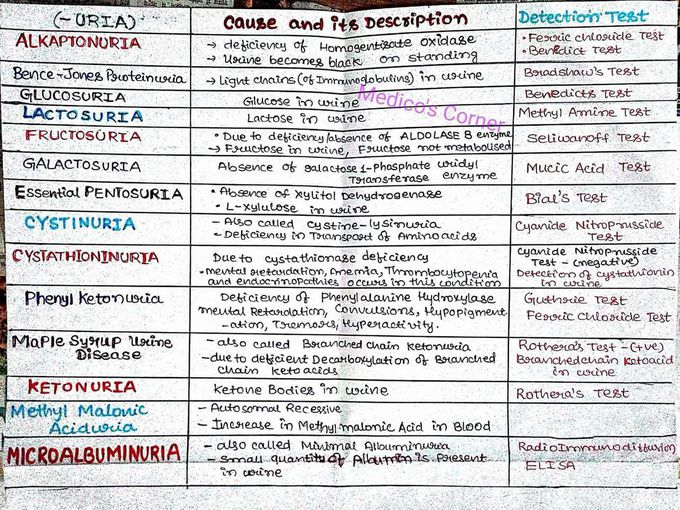 (-URIA) Cause and its Description Detection Test
ALKAPTONURIA
→ deficiency of Homogentisate oxidase
→ Urine becomes black on standing
• Ferric chloride Test
• Benedict Test
Bence-Jones Proteinuria
→ light chains (of Immunoglobulins) in urine
Bradshaw's Test
GLUCOSURIA
Glucose in urine
Benedicts Test
LACTOSURIA
Lactose in urine
Methyl Amine Test
Medico's Corner
FRUCTOSURIA
• Due to deficiency/absence of ALDOLASE B enzyme
→ Fructose in urine, Fructose not metabolised
Seliwanoff Test
GALACTOSURIA
Absence of galactose 1-Phosphate uridyl
Transferase enzyme
Mucic Acid Test
Essential PENTOSURIA
• Absence of Xylitol Dehydrogenase
• L-xylulose in urine
Bial's Test
CYSTINURIA
- Also called cystine-lysinuria
- Deficiency in Transport of Aminoacids
Cyanide Nitroprusside
Test
CYSTATHIONINURIA
Due to cystathionase deficiency
• mental retardation, Anemia, Thrombocytopenia
and endocrinopathies occurs in this condition
cyanide Nitroprusside
Test - (negative)
Detection of cystathionin
in urine
Phenyl Ketonuria
Deficiency of Phenylalanine Hydroxylase
mental Retardation, Convulsions, Hypopigment
-ation, Tremors, Hyperactivity.
Guthrie Test
Ferric Chloride Test
Maple Syrup Urine
Disease
- also called Branched chain ketonuria
- due to deficient Decarboxylation of Branched
chain ketoacids
Rothera's Test - (+ve)
Branchedchain Ketoacid
in urine
KETONURIA
Ketone Bodies in urine
Rothera's Test
Methyl Malonic
Aciduria
- Autosomal Recessive
- Increase in Methylmalonic Acid in Blood
MICROALBUMINURIA
- also called Minimal Albuminuria
- small quantity of Albumin is Present
in urine
RadioImmunodiffusion
ELISA